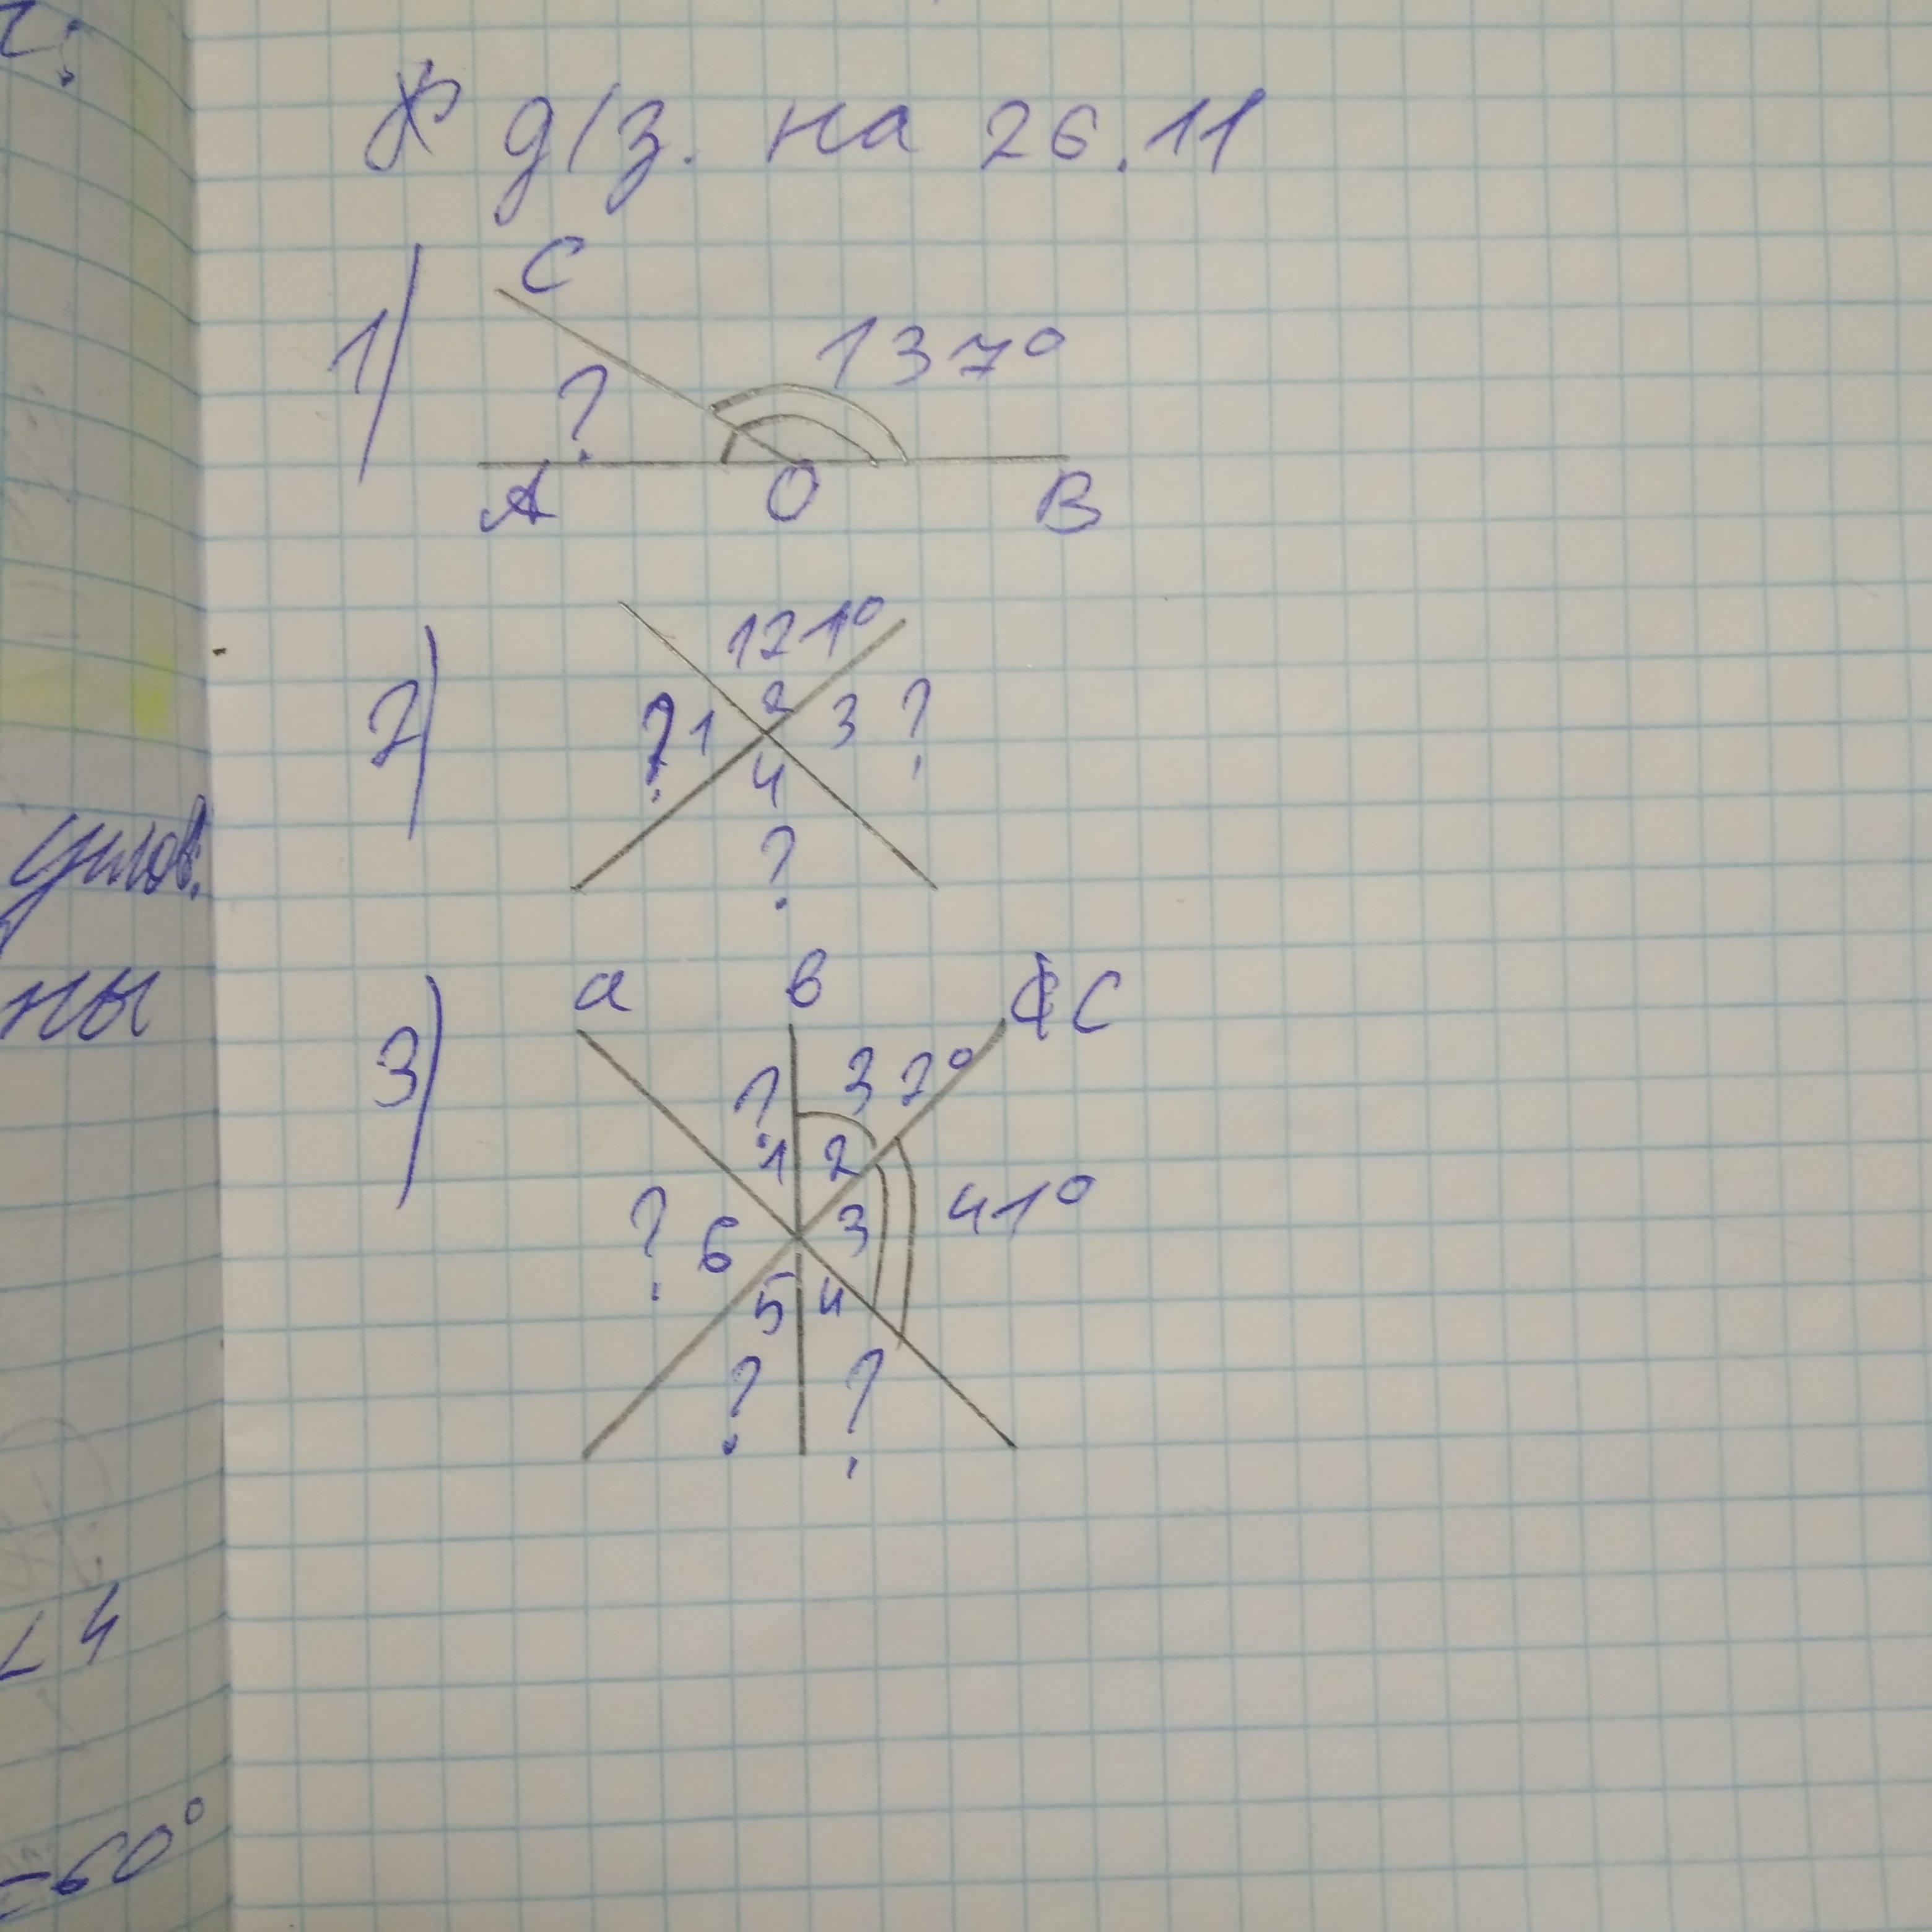 К д/з. на 26.11
1)
C
?
137°
A O B
2)
121°
? 1 2 3 ?
4
?
3)
a в C
? 32°
1 2
? 6 3 41°
5 4
? ?
углов.
ны
∠4
=60°